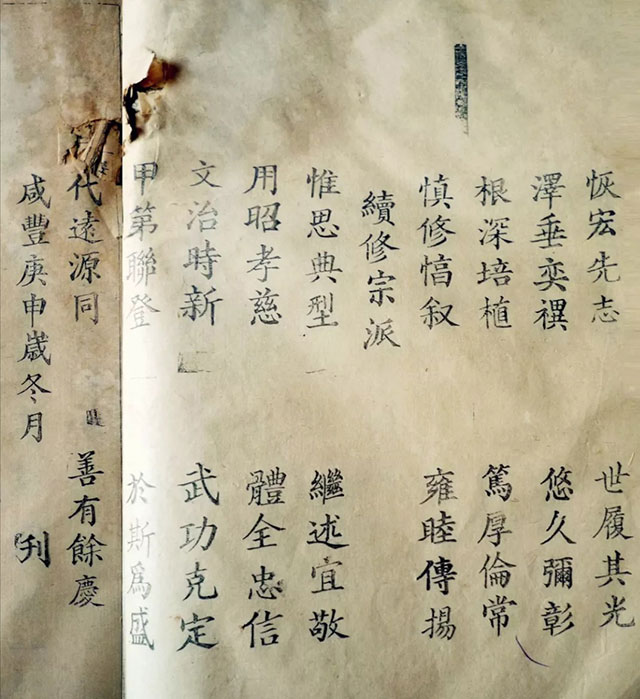 恢宏先志 世履其光
澤垂奕禩 悠久彌彰
根深培植 篤厚倫常
慎修愊叙 雍睦傳揚
續修宗派
惟思典型 繼述宜敬
用昭孝慈 體全忠信
文治時新 武功克定
甲第聯登 於斯爲盛
代遠源同 善有餘慶
咸豐庚申歲冬月 刋